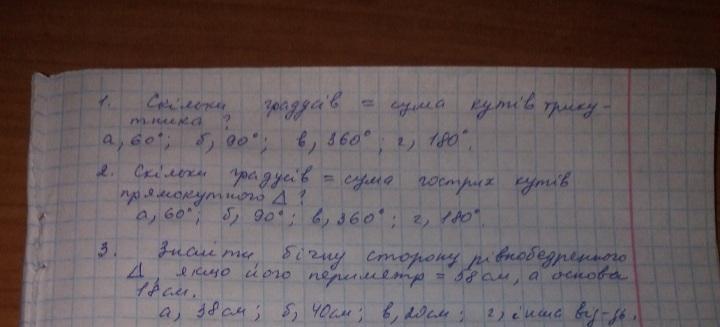 1. Скільки градусів = сума кутів трику-
тника?
а, 60°; б, 90°; в, 360°; г, 180°.
2. Скільки градусів = сума гострих кутів
прямокутного Δ?
а, 60°; б, 90°; в, 360°; г, 180°.
3. Знайти бічну сторону рівнобедренного
Δ, якщо його периметр = 58см, а основа
18см.
а, 38см; б, 40см; в, 20см; г, інша від-дь.